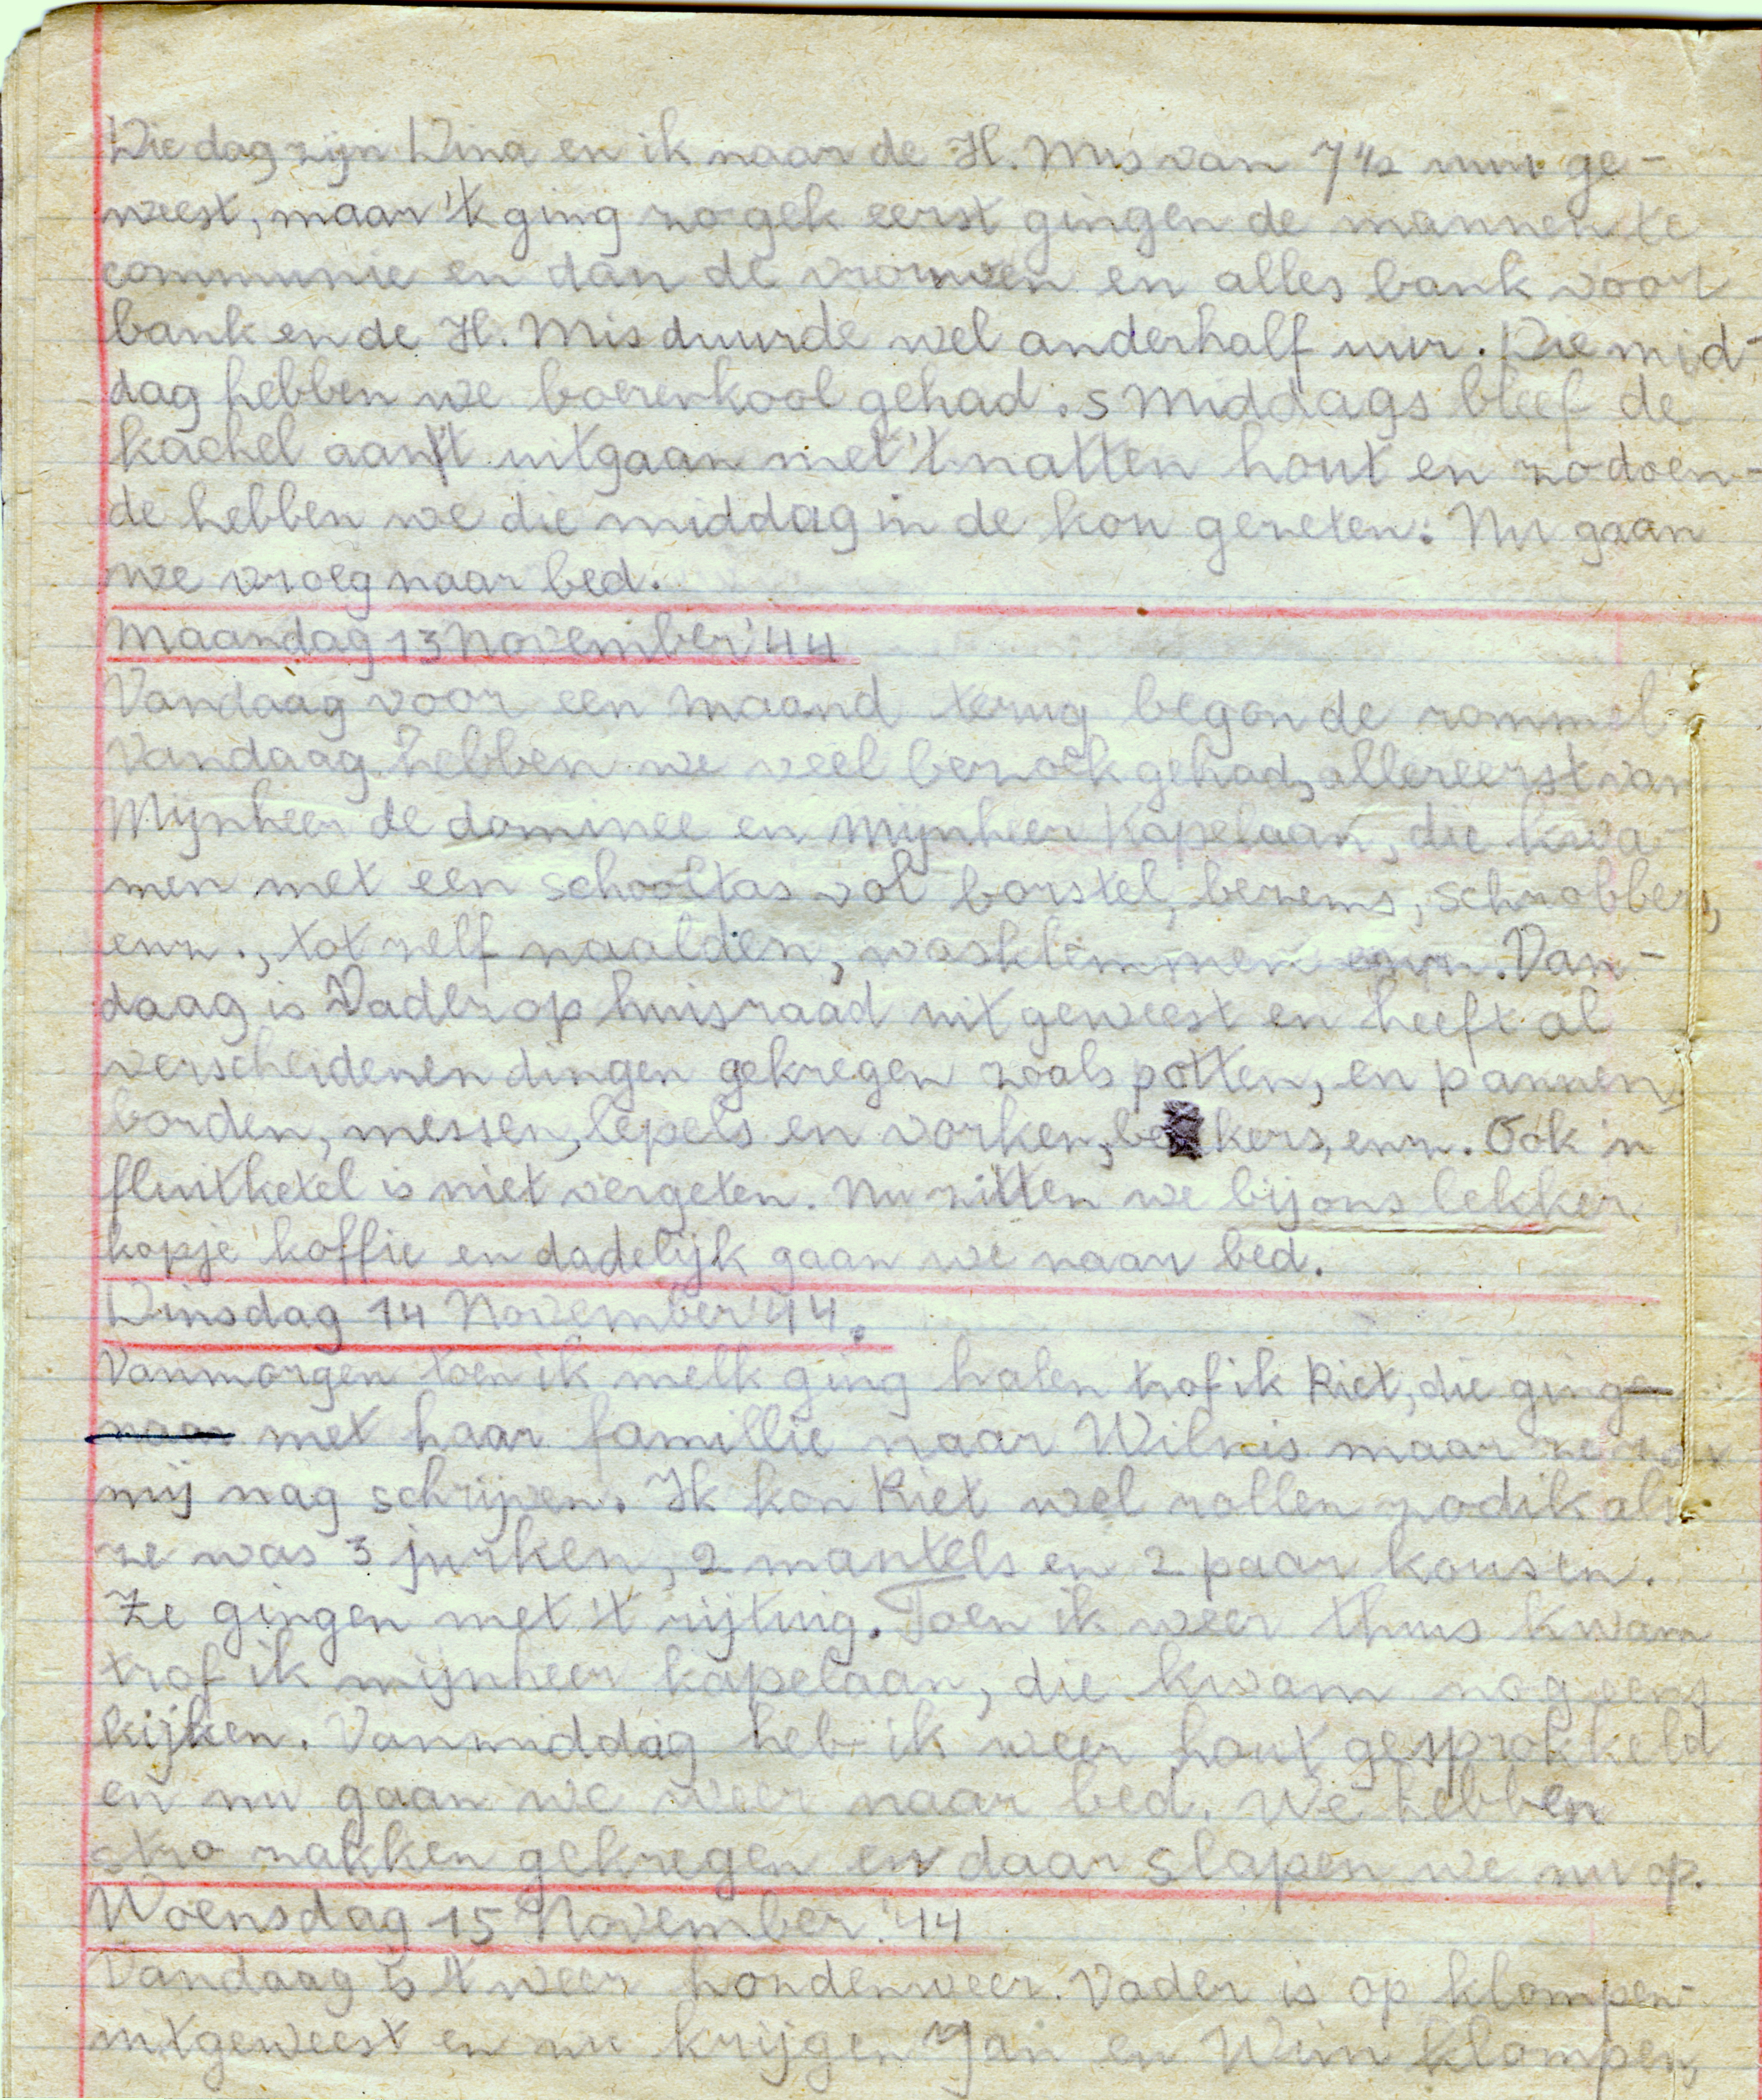 Die dag zijn Dina en ik naar de H. Mis van 7 1/2 uur ge-
weest, maar 't ging zo gek eerst gingen de mannen te
communie en dan de vrouwen en alles bank voor
bank en de H. Mis duurde wel anderhalf uur. Die mid-
dag hebben we boerenkool gehad. s middags bleef de
kachel aan 't uitgaan met 't natten hout en zodoen-
de hebben we die middag in de kou gezeten. Nu gaan
we vroeg naar bed.
Maandag 13 November '44
Vandaag voor een maand terug begon de rommel
Vandaag hebben we veel bezoek gehad, allereerst van
Mijnheer de dominee en Mijnheer Kapelaan, die kwa-
men met een schooltas vol borstel, bezems, schrobbers,
enz., tot zelf naalden, wasklemmen enz. Van-
daag is Vader op huisraad uit geweest en heeft al
verscheidenen dingen gekregen zoals potten, en pannen,
borden, messen, lepels en vorken, bekers, enz. Ook 'n
fluitketel is niet vergeten. Nu zitten we bij ons lekker
kopje koffie en dadelijk gaan we naar bed.
Dinsdag 14 November '44.
Vanmorgen toen ik melk ging halen trof ik Riet, die ging
naar met haar famillie naar Wilnis maar ze zou
mij nog schrijven. Ik kon Riet wel rollen zo dik als
ze was 3 jurken, 2 mantels en 2 paar kousen.
Ze gingen met 't rijtuig. Toen ik weer thuis kwam
trof ik mijnheer kapelaan, die kwam nog eens
kijken. Vanmiddag heb ik weer hout gesprokkeld
en nu gaan we weer naar bed. We hebben
stro zakken gekregen en daar slapen we nu op.
Woensdag 15 November '44
Vandaag is 't weer hondenweer. Vader is op klompen
uitgeweest en nu krijgen Jan en Wim klompen,